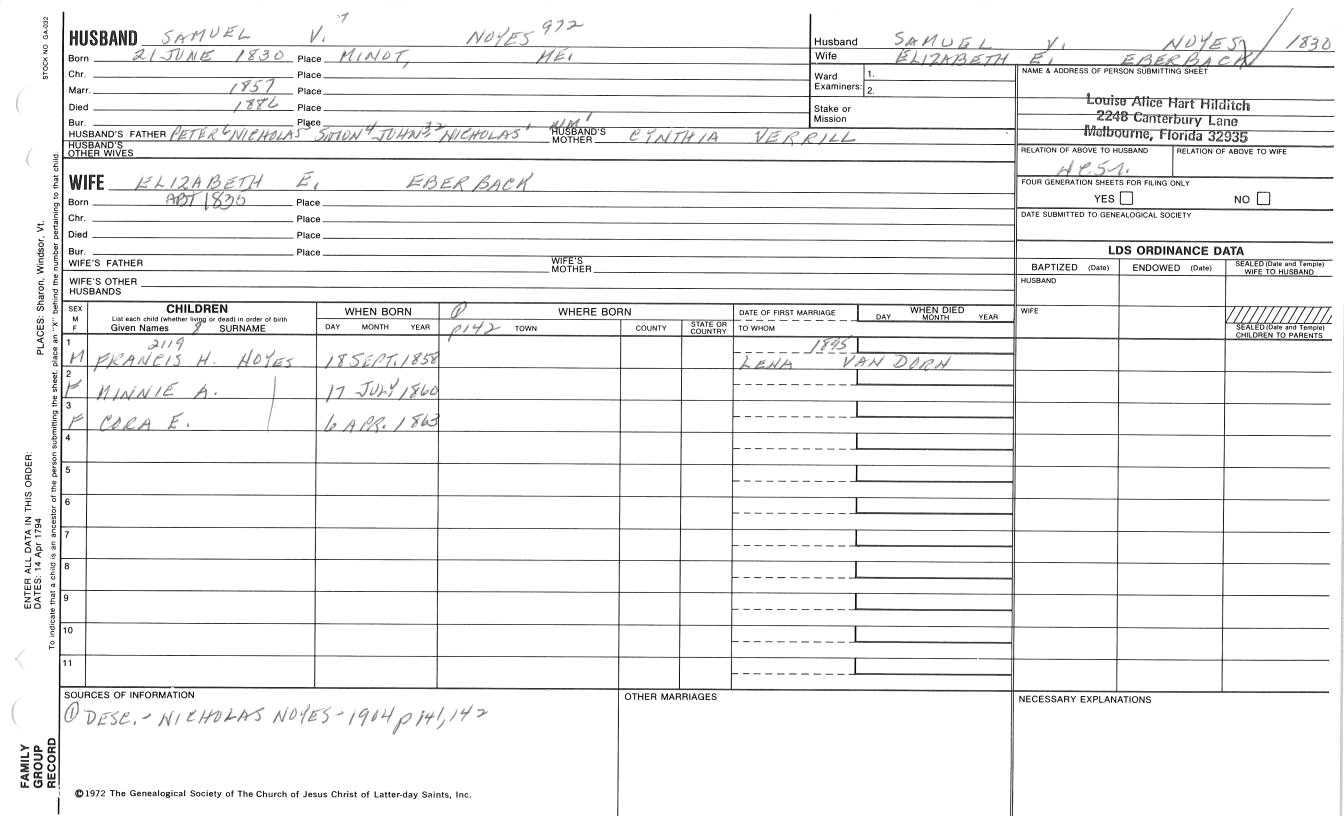 STOCK NO GA-092
HUSBAND SAMUEL V. 7 NOYES 972
Born 21 JUNE 1830 Place MINOT, ME.
Chr. Place
Marr. 1857 Place
Died 1886 Place
Bur. Place
HUSBAND'S FATHER PETER 6 NICHOLAS 5 SIMON 4 JOHN 3 2 NICHOLAS 1 WM 1 HUSBAND'S MOTHER CYNTHIA VERRILL
HUSBAND'S OTHER WIVES
WIFE ELIZABETH E. EBERBACK
Born ABT 1830 Place
Chr. Place
Died Place
Bur. Place
WIFE'S FATHER WIFE'S MOTHER
WIFE'S OTHER HUSBANDS
Husband SAMUEL V. NOYES / 1830
Wife ELIZABETH E. EBERBACK
Ward Examiners: 1. 2.
Stake or Mission
NAME & ADDRESS OF PERSON SUBMITTING SHEET
Louise Alice Hart Hilditch
2248 Canterbury Lane
Melbourne, Florida 32935
RELATION OF ABOVE TO HUSBAND RELATION OF ABOVE TO WIFE
FOUR GENERATION SHEETS FOR FILING ONLY
YES NO
DATE SUBMITTED TO GENEALOGICAL SOCIETY
LDS ORDINANCE DATA
BAPTIZED (Date) ENDOWED (Date) SEALED (Date and Temple) WIFE TO HUSBAND
HUSBAND
WIFE
SEALED (Date and Temple) CHILDREN TO PARENTS
SEX M F
CHILDREN
List each child (whether living or dead) in order of birth
Given Names 8 SURNAME
WHEN BORN
DAY MONTH YEAR
① WHERE BORN
p142 TOWN COUNTY STATE OR COUNTRY
DATE OF FIRST MARRIAGE
TO WHOM
WHEN DIED
DAY MONTH YEAR
1 2119 1895
M FRANCIS H. NOYES 18 SEPT. 1858 LENA VAN DORN
2
F MINNIE A. 17 JULY 1860
3
F CORA E. 6 APR. 1863
4
5
6
7
8
9
10
11
SOURCES OF INFORMATION
① DESC. - NICHOLAS NOYES - 1904 p141, 142
OTHER MARRIAGES
NECESSARY EXPLANATIONS
©1972 The Genealogical Society of The Church of Jesus Christ of Latter-day Saints, Inc.
FAMILY GROUP RECORD
ENTER ALL DATA IN THIS ORDER:
DATES: 14 Apr 1794
PLACES: Sharon, Windsor, Vt.
To indicate that a child is an ancestor of the person submitting the sheet, place an "X" behind the number pertaining to that child